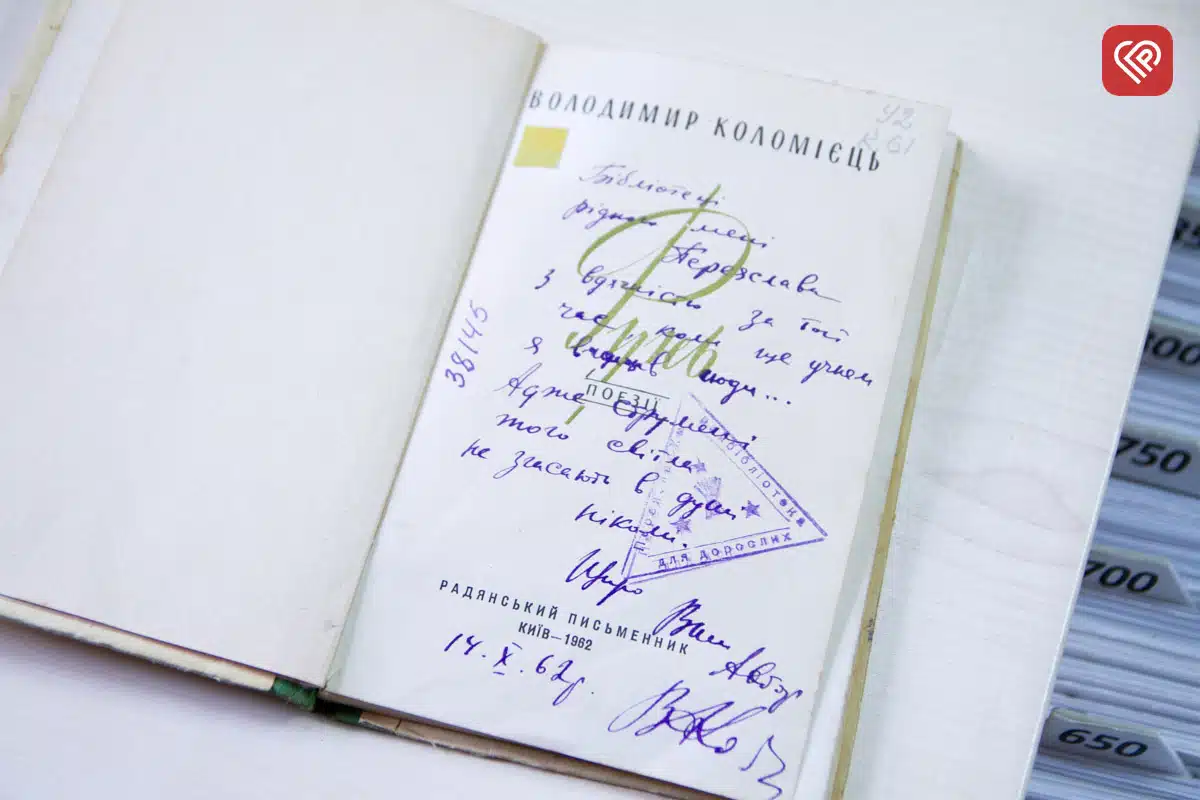 ВОЛОДИМИР КОЛОМІЄЦЬ
У2
К 61
Бібліотеці
рідного мені
Переяслава
з вдячністю за той
час, коли ще учнем
я входив в люди...
Адже струмені
того світла
не згасають в душі
ніколи.
Щиро Ваш
Автор
ПОЕЗІЇ
38145
бібліотека
для дорослих
РАДЯНСЬКИЙ ПИСЬМЕННИК
КИЇВ—1962
14.X.62р.
800
750
700
650